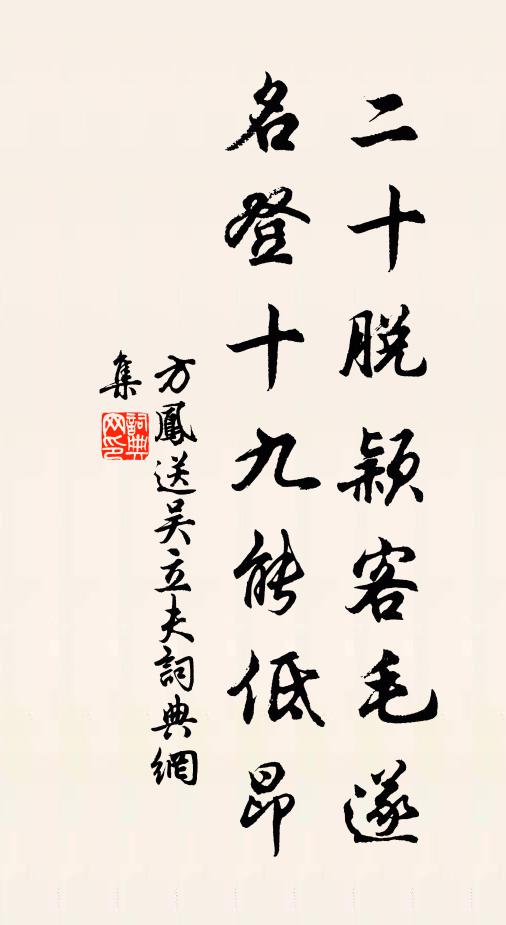 二十脱穎客毛遂
名登十九能低昂
方鳳送吴立夫詞典網
集
詞典網印